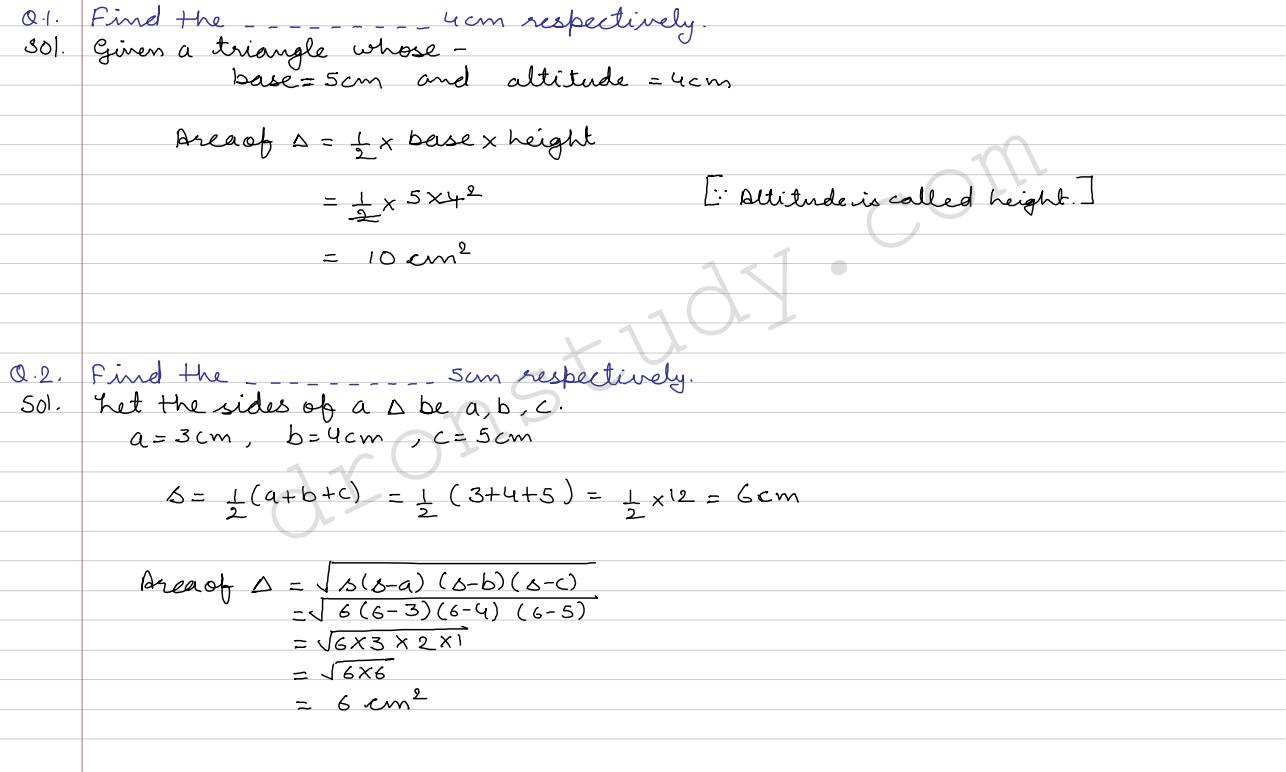 Q.1. Find the _ _ _ _ _ _ _ _ _ 4cm respectively.
Sol. Given a triangle whose -
base = 5cm and altitude = 4cm
Area of Δ = 1/2 × base × height
= 1/2 × 5 × 4 2 [∵ Altitude is called height.]
= 10 cm²
Q.2. Find the _ _ _ _ _ _ _ _ _ _ 5cm respectively.
Sol. Let the sides of a Δ be a, b, c.
a = 3cm, b = 4cm, c = 5cm
s = 1/2 (a+b+c) = 1/2 (3+4+5) = 1/2 × 12 = 6cm
Area of Δ = √s(s-a) (s-b) (s-c)
= √6(6-3)(6-4) (6-5)
= √6×3×2×1
= √6×6
= 6 cm²
dronstudy.com